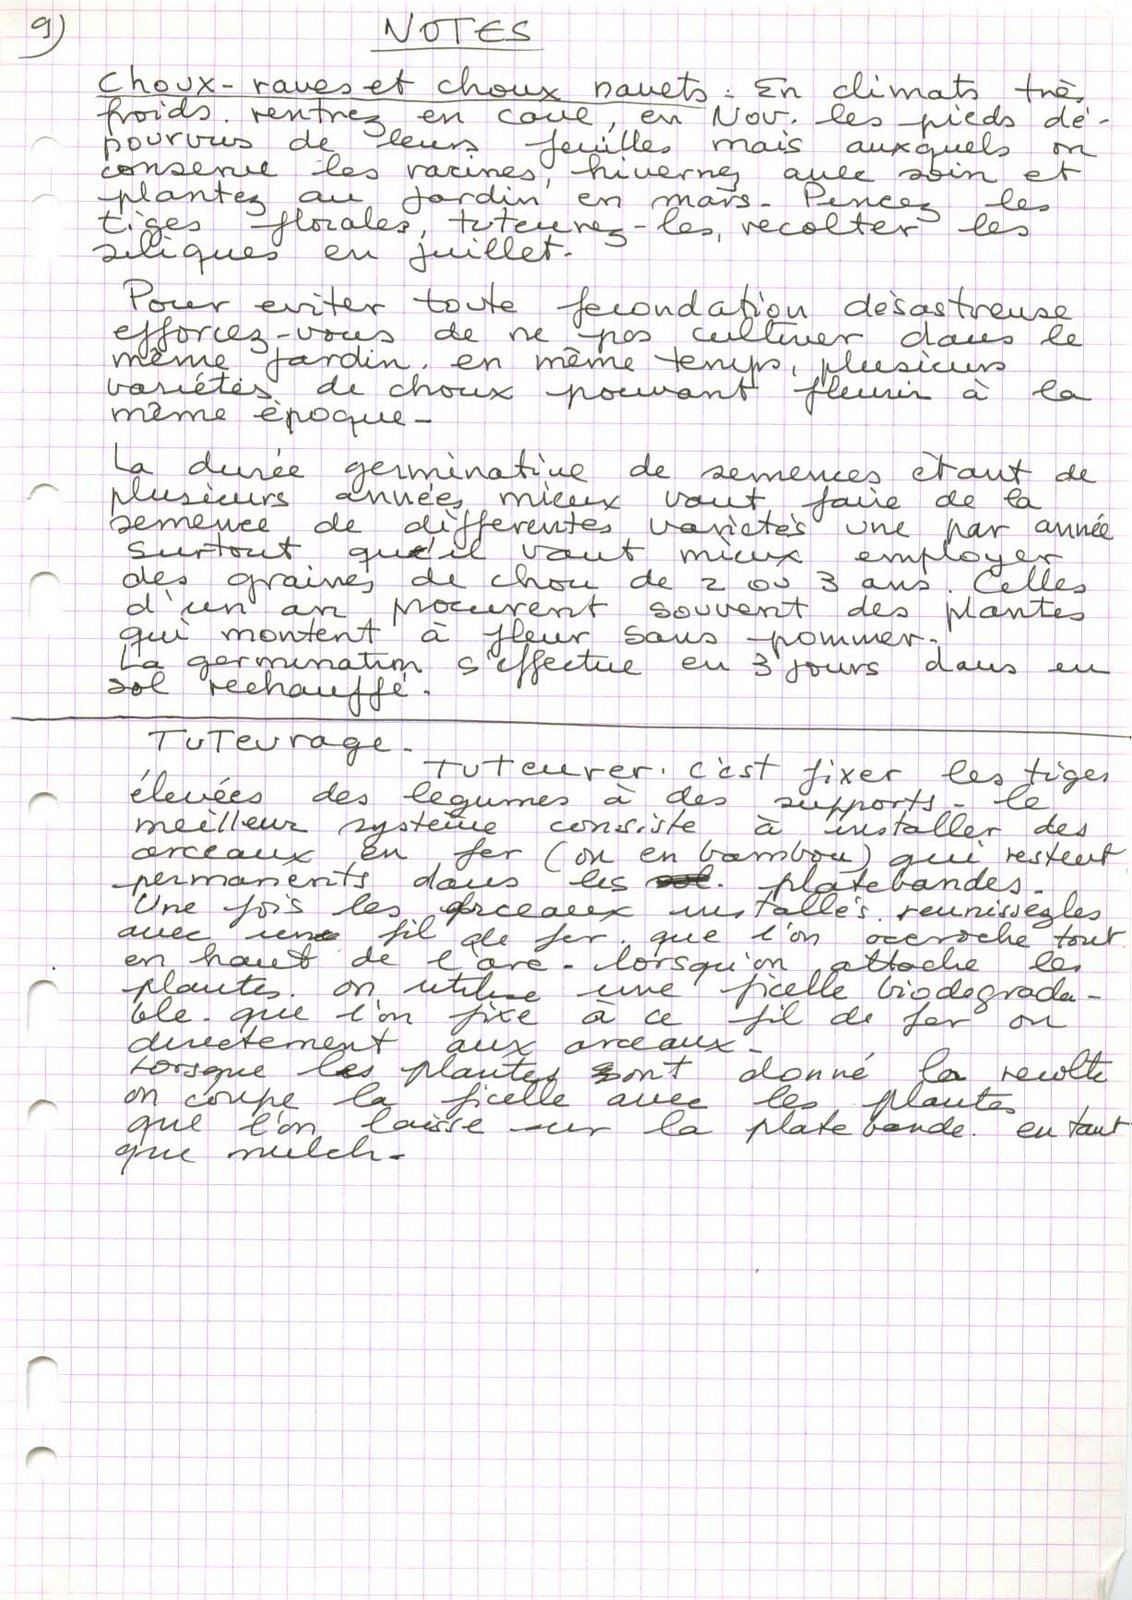 9)
NOTES
Choux-raves et choux navets. En climats très
froids. rentrez en cave, en Nov. les pieds dé-
pourvus de leurs feuilles mais auxquels on
conserve les racines, hivernez avec soin et
plantez au jardin en mars. Pincez les
tiges florales, tuteurez-les, recolter les
siliques en juillet.
Pour eviter toute fecondation désastreuse
efforcez-vous de ne pas cultiver dans le
même jardin. en même temps, plusieurs
variétés de choux pouvant fleurir à la
même époque-
La durée germinative de semences étant de
plusieurs années mieux vaut faire de la
semence de différentes varietés une par année
surtout qu'il vaut mieux employer
des graines de chou de 2 ou 3 ans. Celles
d'un an procurent souvent des plantes
qui montent à fleur sans pommer.
La germination s'effectue en 3 jours dans un
sol rechauffé.
Tuteurage-
Tuteurer. c'est fixer les tiges
élevées des legumes à des supports- le
meilleur système consiste à installer des
arceaux en fer (ou en bambou) qui restent
permanents dans les platebandes.
Une fois les arceaux installés. reunissezles
avec un fil de fer. que l'on accroche tout
en haut de l'arc- lorsqu'on attache les
plantes. on utilise une ficelle biodegrada-
ble. que l'on fixe à ce fil de fer ou
directement aux arceaux-
Lorsque les plantes ont donné la recolte
on coupe la ficelle avec les plantes
que l'on laisse sur la plate bande. en tant
que mulch-